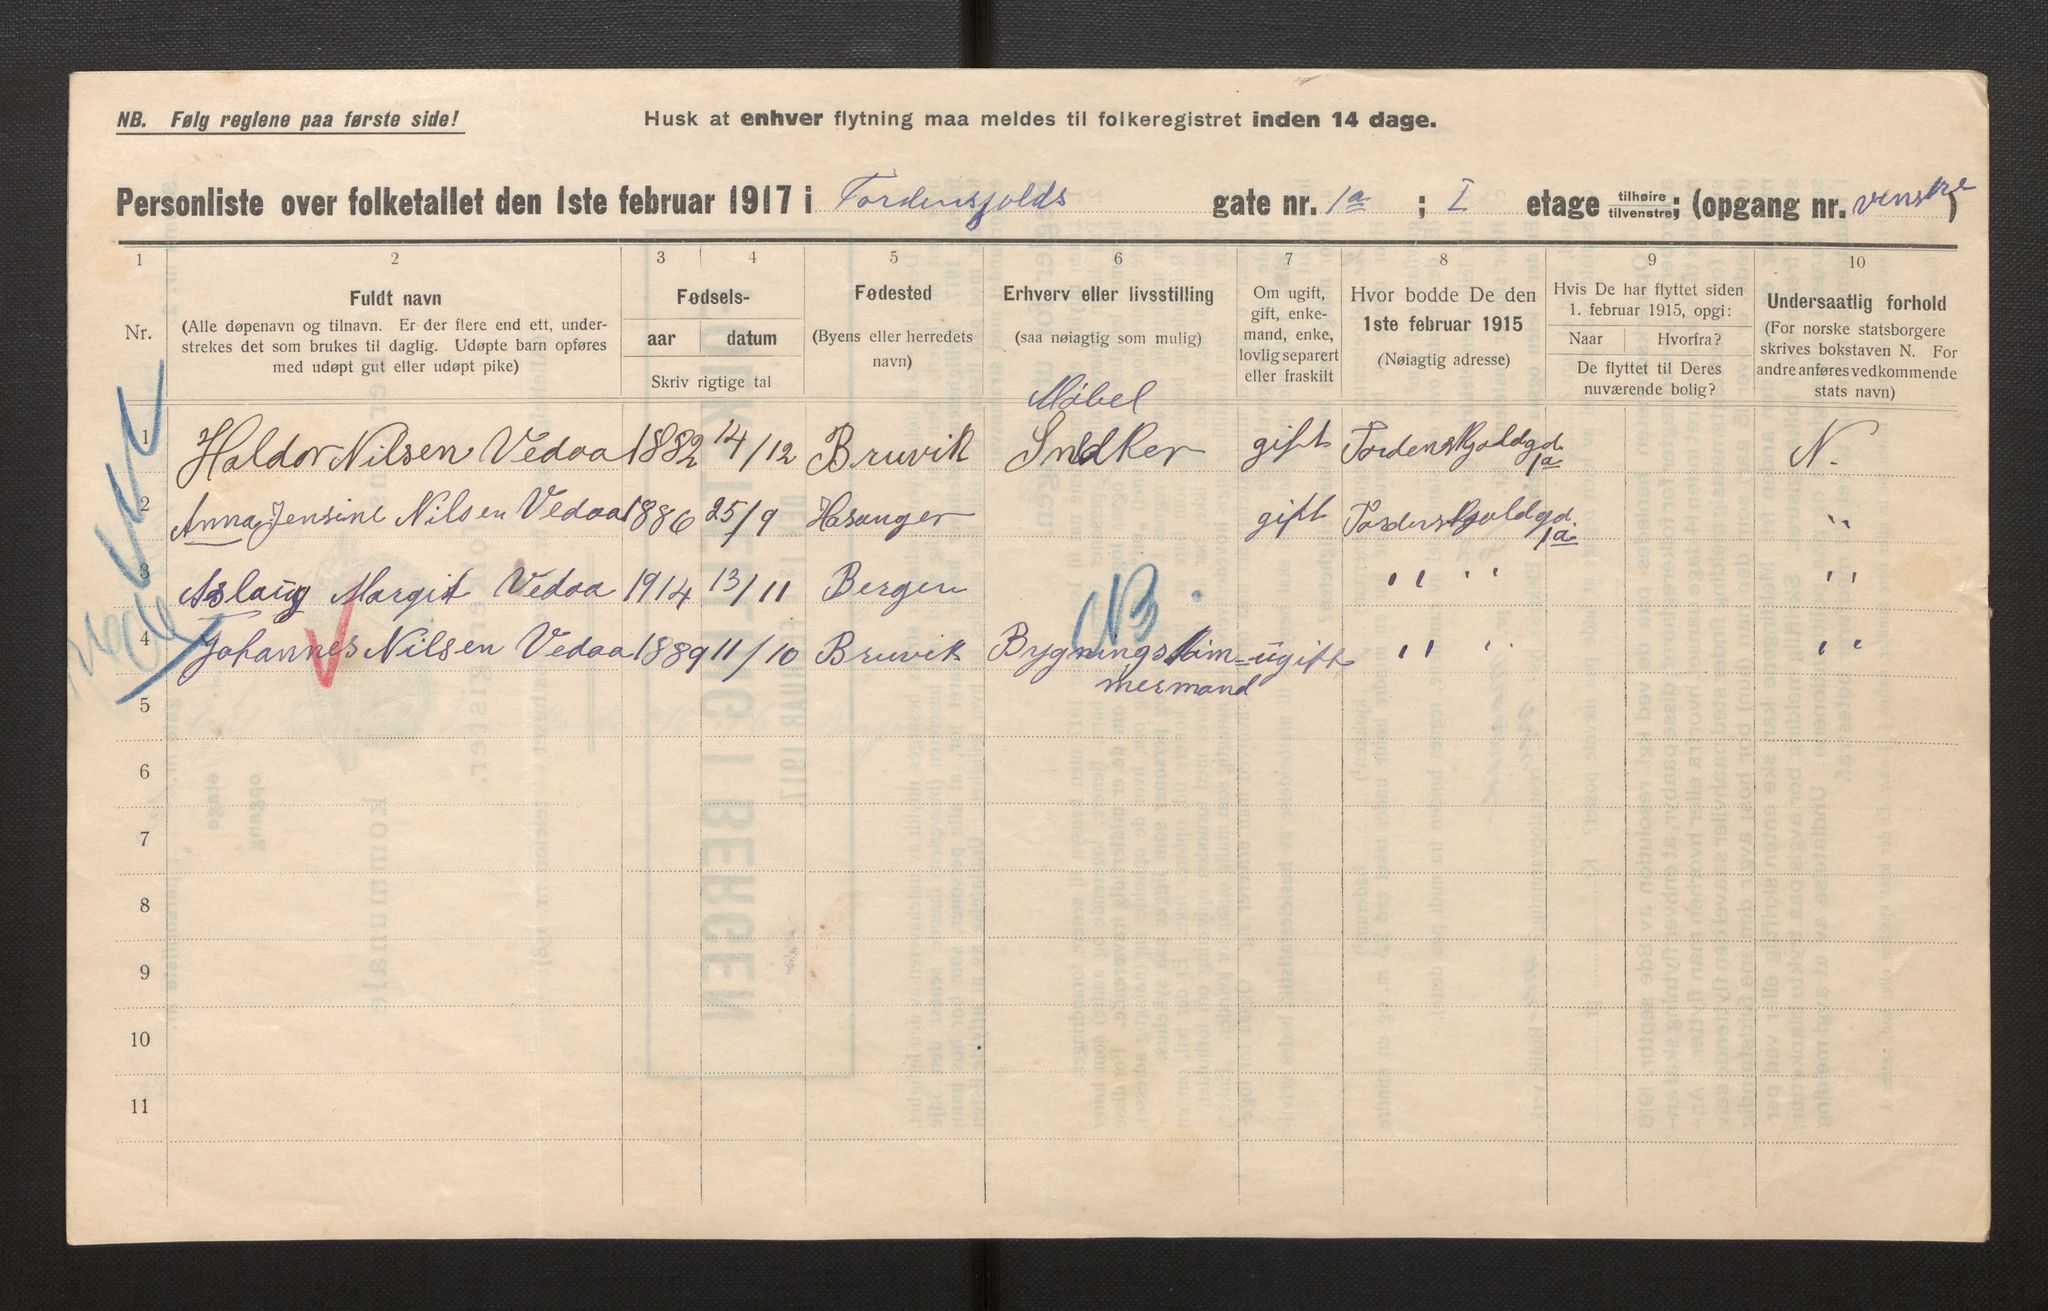 NB. Følg reglene paa første side!
Husk at enhver flytning maa meldes til folkeregistret inden 14 dage.
Personliste over folketallet den 1ste februar 1917 i Tordensjolds gate nr. 1a ; I etage tilhøire tilvenstre; (opgang nr. venstre)
1 2 3 4 5 6 7 8 9 10
Nr.
Fuldt navn
(Alle døpenavn og tilnavn. Er der flere end ett, under-
strekes det som brukes til daglig. Udøpte barn opføres
med udøpt gut eller udøpt pike)
Fødsels-
aar datum
Skriv rigtige tal
Fødested
(Byens eller herredets
navn)
Erhverv eller livsstilling
(saa nøiagtig som mulig)
Om ugift,
gift, enke-
mand, enke,
lovlig separert
eller fraskilt
Hvor bodde De den
1ste februar 1915
(Nøiagtig adresse)
Hvis De har flyttet siden
1. februar 1915, opgi:
Naar Hvorfra?
De flyttet til Deres
nuværende bolig?
Undersaatlig forhold
(For norske statsborgere
skrives bokstaven N. For
andre anføres vedkommende
stats navn)
Møbel
1 Haldor Nilsen Vedaa 1882 14/12 Bruvik Snedker gift Tordenskjoldgd. 1a N.
2 Anna Jensine Nilsen Vedaa 1886 25/9 Hosanger gift Tordenskjoldgd. 1a "
3 Aslaug Margit Vedaa 1914 13/11 Bergen " " "
NB.
4 Johannes Nilsen Vedaa 1889 11/10 Bruvik Bygningstim= ugift " " "
mermand
5
6
7
8
9
10
11